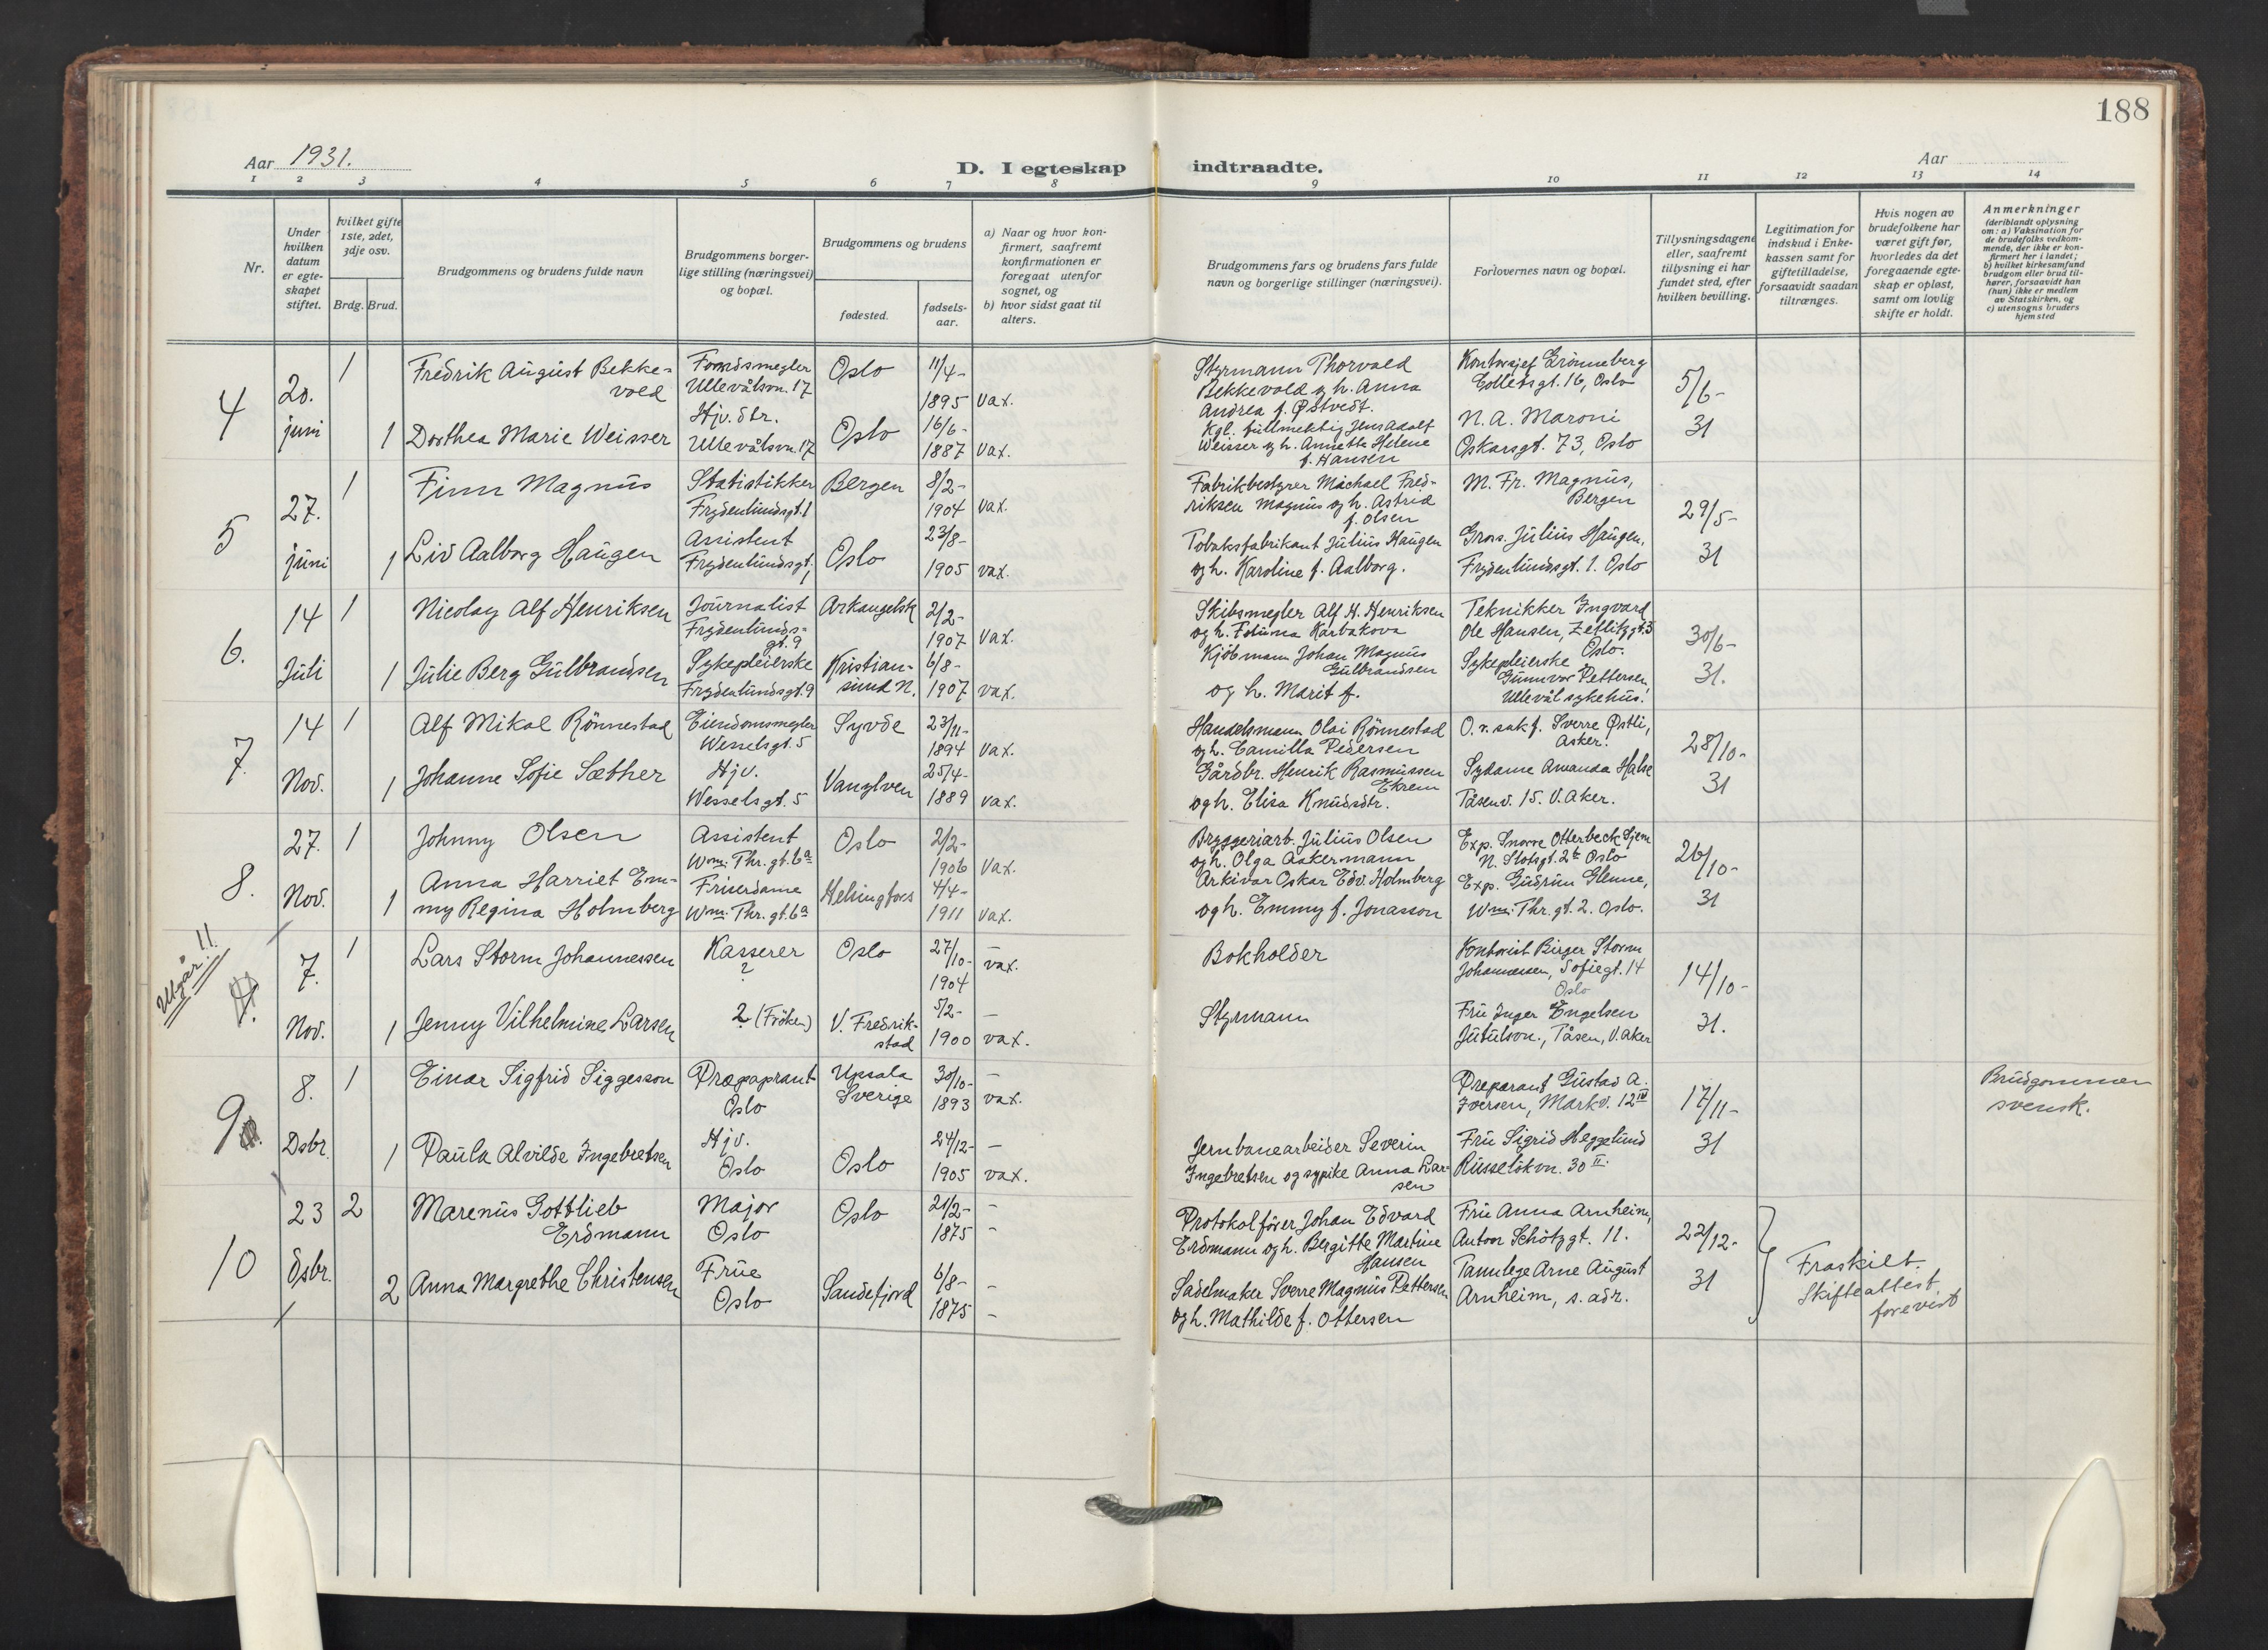 188
Aar 1931.
D. I egteskap indtraadte.
Aar
1 2 3 4 5 6 7 8 9 10 11 12 13 14
Nr.
Under hvilken datum er egteskapet stiftet.
Hvilket gifte 1ste, 2det, 3dje osv.
Brdg. Brud.
Brudgommens og brudens fulde navn
Brudgommens borgerlige stilling (næringsvei) og bopæl.
Brudgommens og brudens
fødested.
fødselsaar.
a) Naar og hvor konfirmert, saafremt konfirmationen er foregaat utenfor sognet, og
b) hvor sidst gaat til alters.
Brudgommens fars og brudens fars fulde navn og borgerlige stillinger (næringsvei).
Forlovernes navn og bopæl.
Tillysningsdagene eller, saafremt tillysning ei har fundet sted, efter hvilken bevilling.
Legitimation for indskud i Enkekassen samt for giftetilladelse, forsaavidt saadan tiltrænges.
Hvis nogen av brudefolkene har været gift før, hvorledes da det foregaaende egteskap er opløst, samt om lovlig skifte er holdt.
Anmerkninger (deriblandt oplysning om: a) Vaksination for de brudefolks vedkommende, der ikke er konfirmert her i landet; b) hvilket kirkesamfund brudgom eller brud tilhører, forsaavidt han (hun) ikke er medlem av Statskirken, og c) utensogns bruders hjemsted
4
20. juni
1
Fredrik August Bekkevold
Ullevålsvn. 17
Oslo
11/4- 1895
vax.
Styrmann Thorvald
Bekkevold og h. Anna
Andrea f. Østvedt.
Kontorsjef Grönneberg
Colletsgt. 16, Oslo
5/6-
31
1
Dorthea Marie Weisser
Hjv. dtr.
Ullevålsvn. 17
Oslo
16/6- 1887
vax.
Kgl. fullmektig Jens Adolf
Weisser og h. Annette Helene
f. Hansen
N. A. Maroni
Oskarsgt. 73, Oslo
5
27. juni
1
Finn Magnus
Statistikker
Frydenlundsgt. 1
Bergen
8/2- 1904
vax.
Fabrikbestyrer Michael Fred-
riksen Magnus og h. Astrid
f. Olsen
M. Fr. Magnus,
Bergen
29/5-
31
1
Liv Aalborg Haugen
Assistent
Frydenlundsgt. 1
Oslo
23/8- 1905
vax.
Tobaksfabrikant Julius Haugen
og h. Karoline f. Aalborg.
Gros. Julius Haugen,
Frydenlundsgt. 1. Oslo
6.
14 Juli
1
Nicolay Alf Henriksen
Journalist
Frydenlunds-
gt. 9
Arkangelsk
2/2- 1907
vax.
Skibsmegler Alf H. Henriksen
og h. Fotinna Karbakova
Teknikker Ingvard
Ole Hansen, Zetlitzgt. 5
Oslo.
30/6-
31.
1
Julie Berg Gulbrandsen
Sykepleierske
Frydenlundsgt. 9
Kristian-
sund N.
6/8- 1907
vax.
Kjöbmann Johan Magnus
Gulbrandsen
og h. Marit f.
Sykepleierske
Gunnvor Pettersen
Ullevål sykehus!
7.
14 Nov.
1
Alf Mikal Rönnestad
Eiendomsmegler
Wesselsgt. 5
Syvde
23/11- 1894
vax.
Handelsmann Olai Rönnestad
og h. Camilla Pedersen
O. r. sakf. Sverre Østli,
Asker.
28/10-
31
1
Johanne Sofie Sæther
Hjv.
Wesselsgt. 5
Vanylven
25/4- 1889
vax.
Gårdbr. Henrik Rasmussen
Ekrem
og h. Elisa Knudsdtr.
Sydame Amanda Halse
Tåsenv. 15. V. Aker.
8.
27. Nov.
1
Johnny Olsen
Assistent
Wm. Thr. gt. 6a
Oslo
2/2- 1906
vax.
Bryggeriarb. Julius Olsen
og h. Olga Askermann
Exp. Snorre Otterbeck Sjem
N. Slotsgt. 2b Oslo
26/10-
31
1
Anna Harriet Em-
my Regina Holmberg
Friserdame
Wm. Thr. gt. 6a
Helsingfors
4/4- 1911
vax.
Arkivar Oskar Edv. Holmberg
og h. Emmy f. Jonasson
Exp. Gudrun Glenne,
Wm. Thr. gt. 2. Oslo.
Utgår!!
7. Nov.
1
Lars Storm Johannessen
Kasserer
?
Oslo
27/10- 1904
–
vax.
Bokholder
Kontorist Birger Storm
Johannessen, Sofiegt. 14
Oslo
14/10-
31.
1
Jenny Vilhelmine Larsen
? (Fröken)
V. Fredrik-
stad
5/2- 1900
–
vax.
Styrmann
Fru Inger Engelsen
Jutulsvn., Tåsen, V. Aker
9.
8. Dsbr.
1
Einar Sigfrid Siggesson
Præpaprant
Oslo
Upsala
Sverige
30/10- 1893
–
vax.
Preparant Gustav A.
Iversen, Markv. 12 IV
17/11-
31
Brudgommen
svensk.
1
Paula Alvilde Ingebretsen
Hjv.
Oslo
Oslo
24/12- 1905
–
vax.
Jernbanearbeider Severin
Ingebretsen og sypike Anna Lar-
sen
Fru Sigrid Heggelund
Russelökvn. 30 II.
10
23 dsbr.
2
Marenus Gottlieb
Erdmann
Major
Oslo
Oslo
21/2- 1875
–
–
Protokolförer Johan Edvard
Erdmann og h. Bergitte Martine
Hansen
Fru Anna Arnheim,
Anton Schötzgt. 11.
22/12-
31
Fraskilt.
Skifteattest
forevist
2
Anna Margrethe Christensen
Frue
Oslo
Sandefjord
6/8- 1875
–
–
Sadelmaker Sverre Magnus Pettersen
og h. Mathilde f. Ottersen
Tannlege Arne August
Arnheim, s. adr.